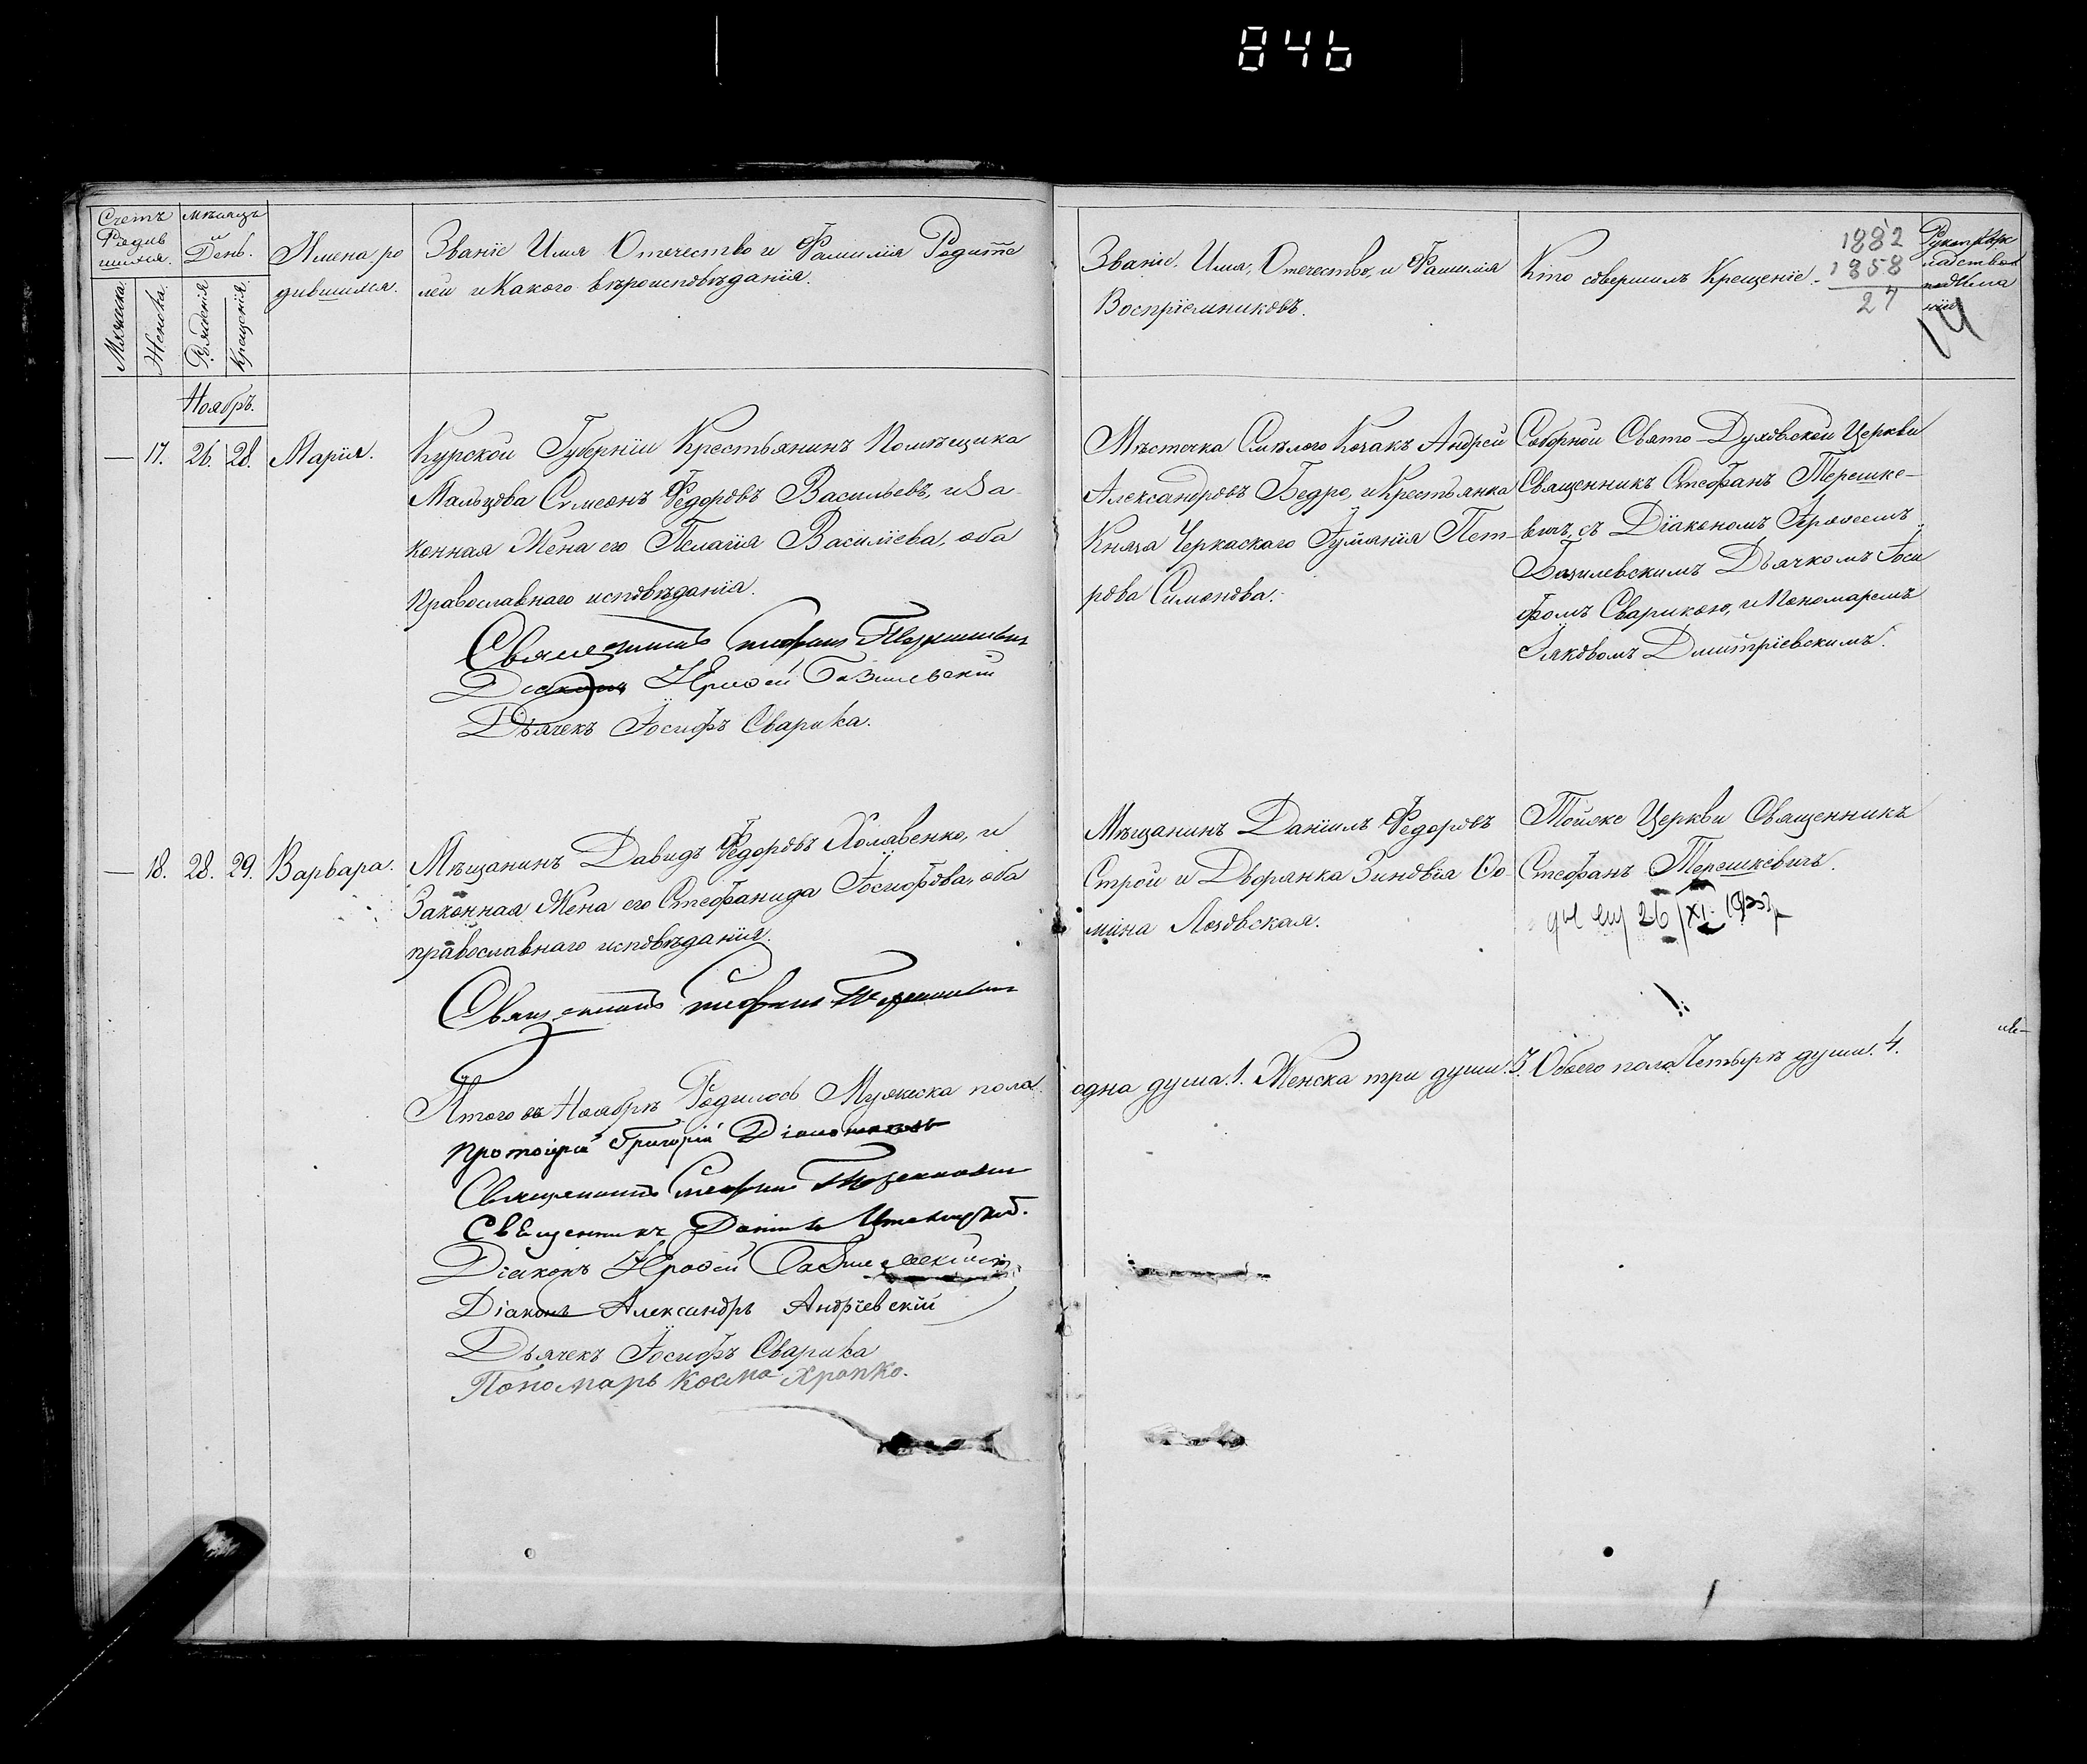 846
Счетъ
Родив
шихся.
Мѣсяцъ
и
День.
Мужеска.
Женска.
Рожденія
Крещенія.
Имена ро
дившихся.
Званіе Имя Отечество и Фамилія Родите
лей и Какого вѣроисповѣданія.
Званіе, Имя, Отечество, и Фамилія
Воспріемниковъ.
Кто совершилъ Крещеніе.
1882
1858
27
14
Ноябрь.
— 17. 26. 28. Марія.
Курской Губерніи Крестьянинъ Помѣщика
Мальцова Симеонъ Федоровъ Васильевъ, и За
конная Жена его Пелагія Василіева, оба
Православнаго исповѣданія.
Священникъ Стефанъ Терешкевичъ
Діаконъ Іероѳей Базилевскій
Дьячекъ Іосифъ Сварика.
Мѣстечка Смѣлого Козакъ Андрей
Александровъ Бедро, и Крестьянка
Князя Черкаскаго Іуліанія Пет-
рова Симонова.
Соборной Свято-Духовской Церкви
Священникъ Стефанъ Терешке-
вичъ, съ Діакономъ Іероѳеемъ
Базилевскимъ Дьячкомъ Іоси
фомъ Сварикою, и Пономаремъ
Іяковомъ Дмитріевскимъ.
— 18. 28. 29. Варвара.
Мѣщанинъ Давидъ Федоровъ Холявенко, и
Законная Жена его Стефанида Іосифова, оба
православнаго исповѣданія.
Священникъ Стефанъ Терешкевичъ
Мѣщанинъ Даніилъ Федоровъ
Строй и Дворянка Зиновія Ѳо
мина Лозовская.
Тойже Церкви Священникъ
Стефанъ Терешкевичъ.
26/XI
Итого въ Ноябрѣ Родилось Мужеска пола
одна душа. 1. Женска три души. 3. Обоего пола Четырѣ души. 4.
Протоіерей Григорій
Священникъ Стефанъ Терешкевичъ
Священникъ Даніилъ
Діаконъ Іероѳей Базилевскій
Діаконъ Александръ Андріевскій
Дьячекъ Іосифъ Сварика
Пономарь Косма Хропко.